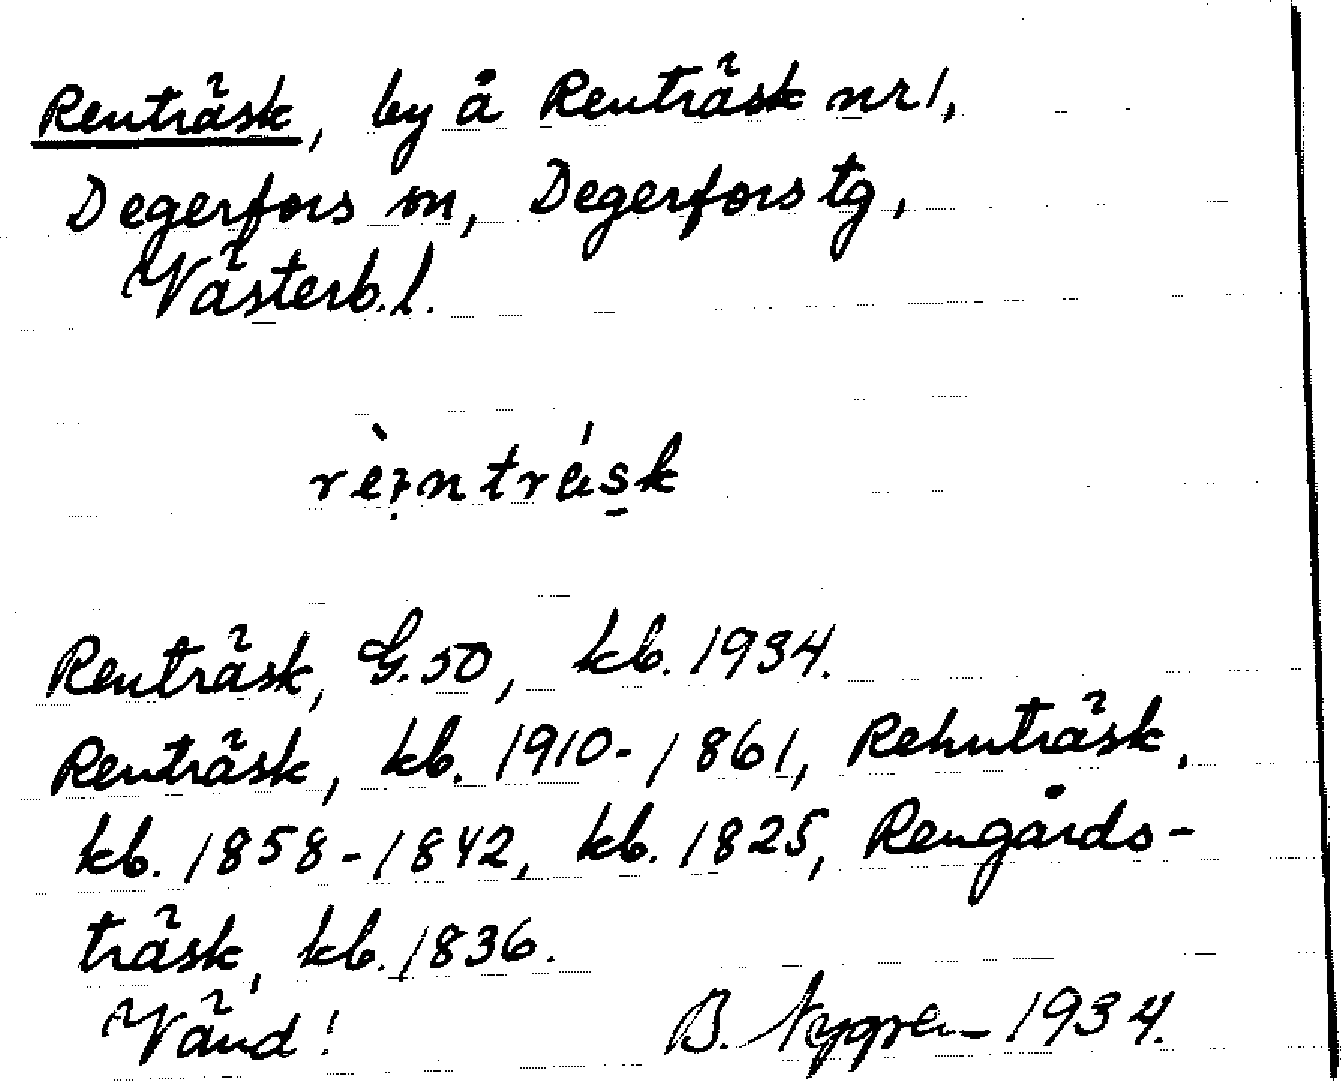 Renträsk, by å Renträsk nr 1,
Degerfors sn, Degerfors tg,
Västerb. l.
Renträsk, G. 50, kb. 1934.
Renträsk, kb. 1910-1861, Rehnträsk,
kb. 1858-1842, kb. 1825, Rengårds-
träsk, kb. 1836.
Vänd!
B. Nygren 1934.